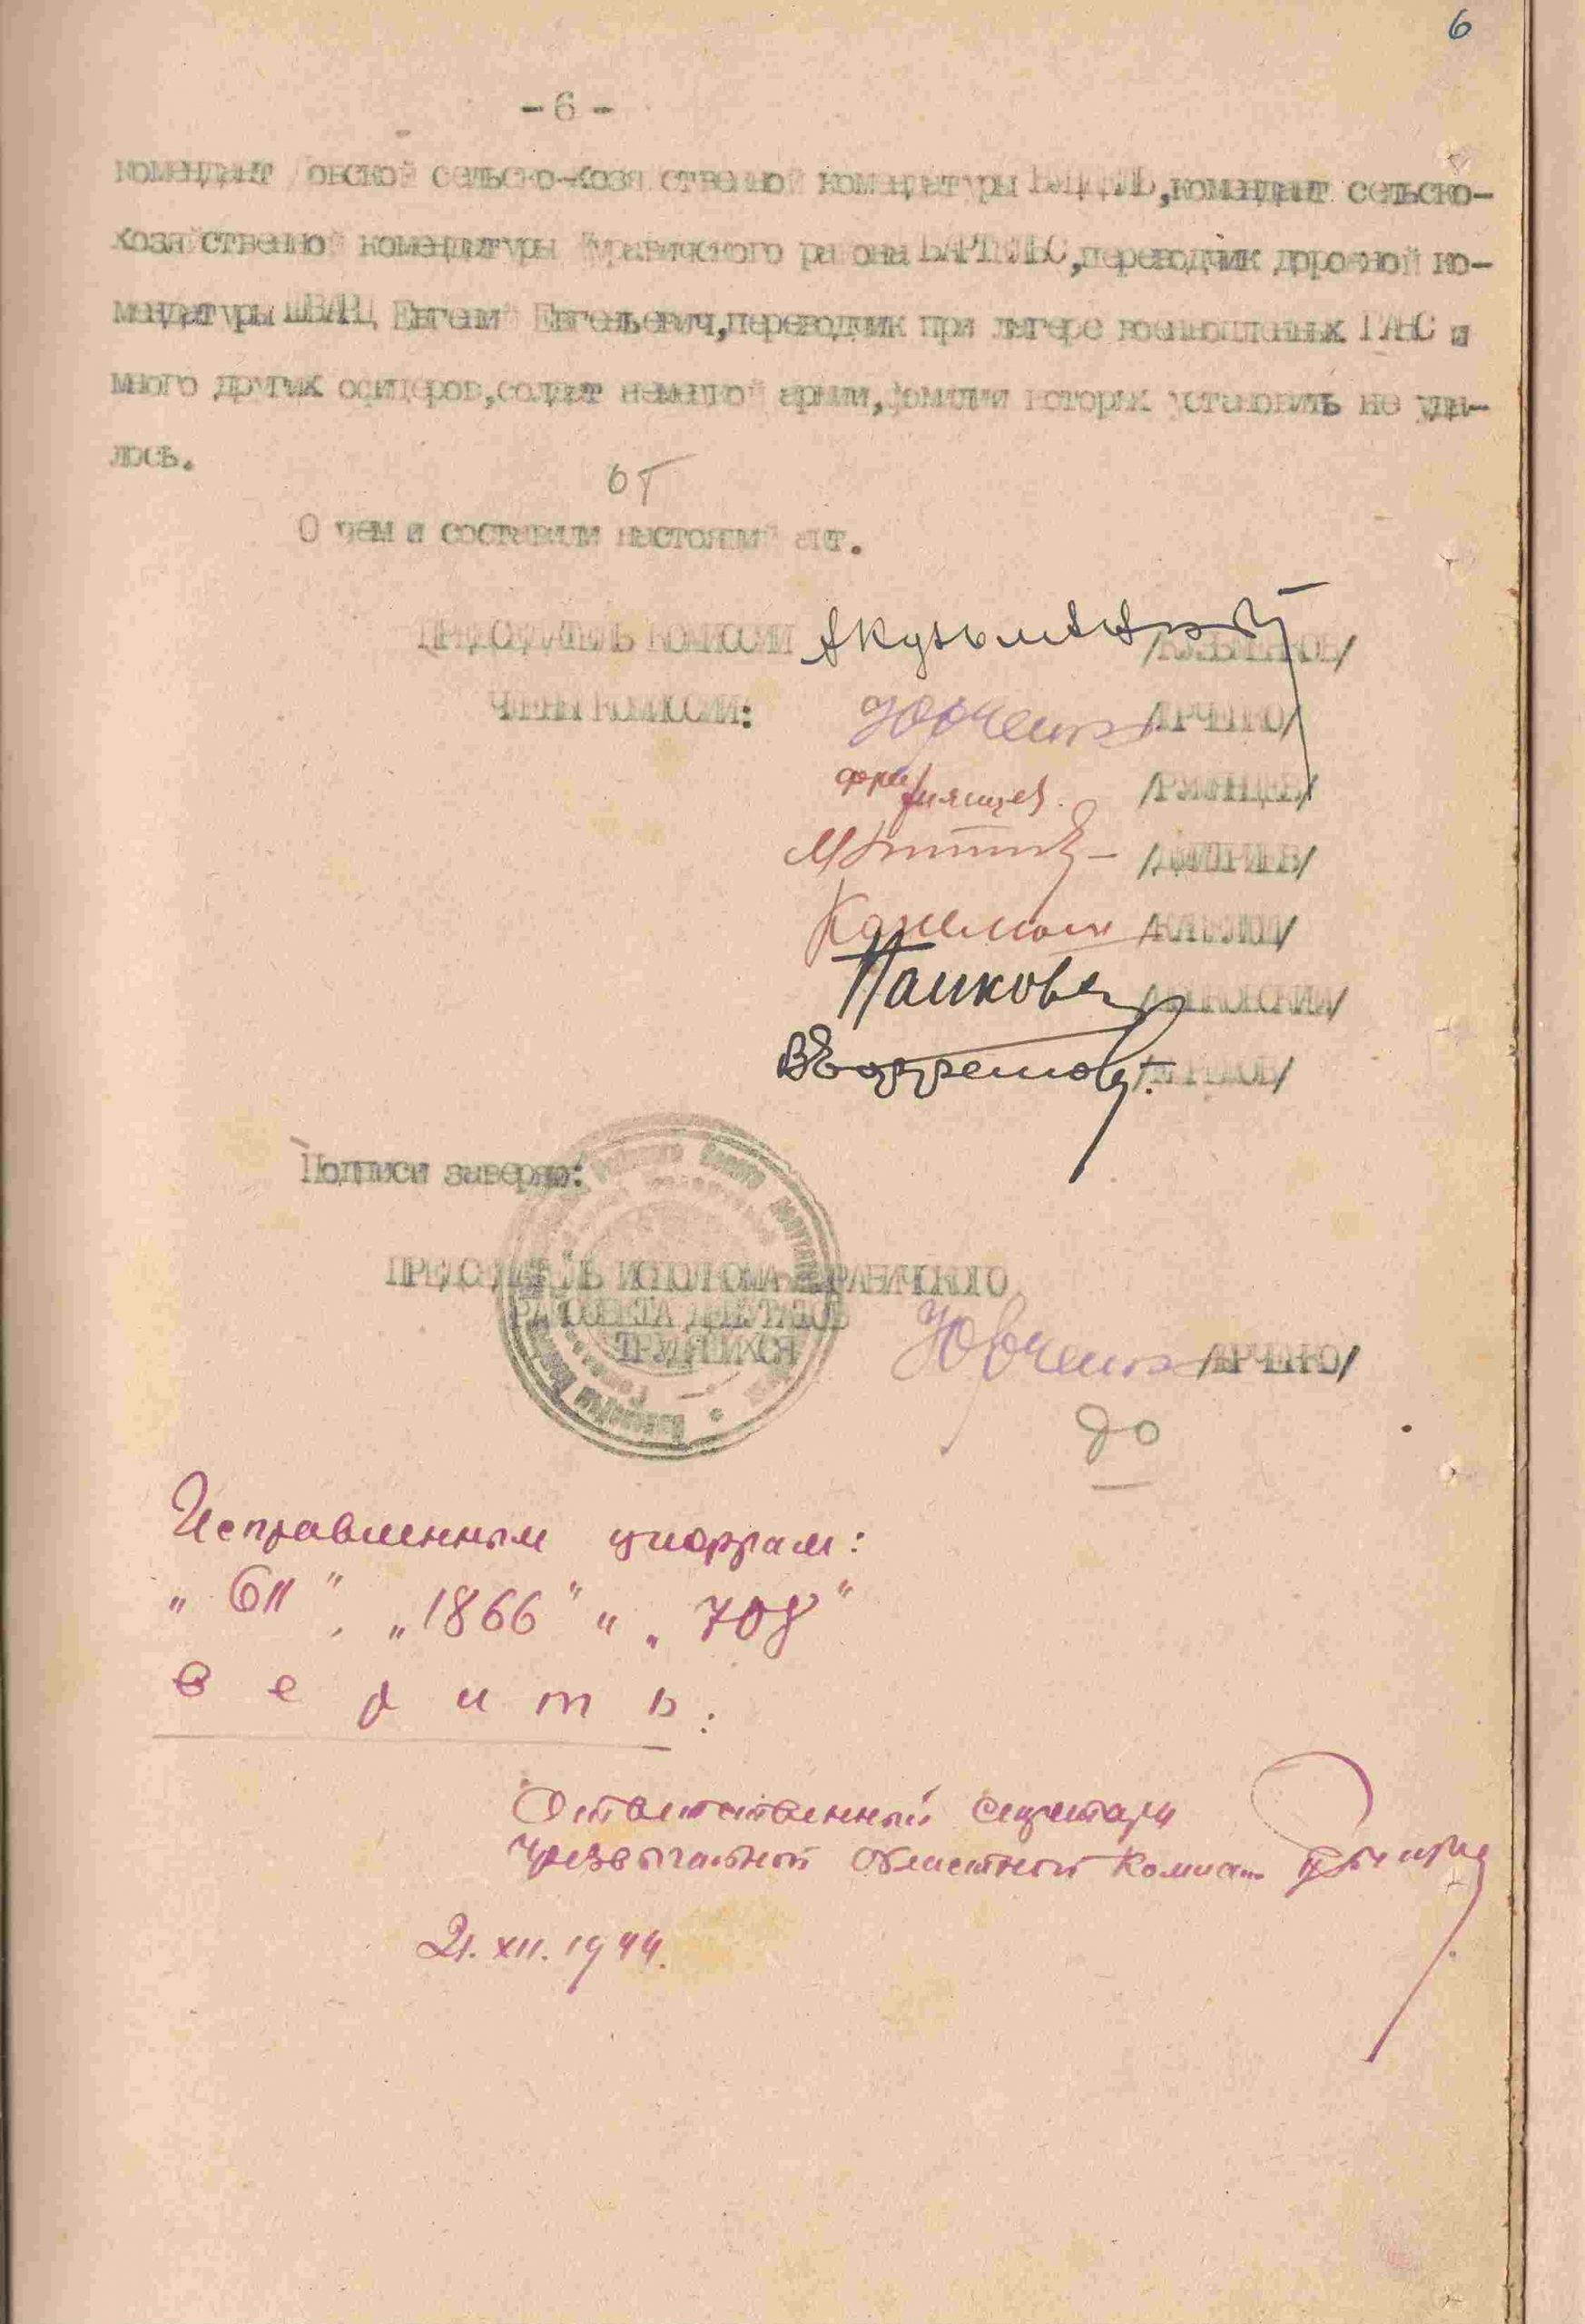 6
- 6 -
комендант овской сельско-хозяйственной комендатуры комендант сельско-
хозяйственной комендатуры района БАРТЕЛЬС, переводчик дорожной ко-
мендатуры ШВАРЦ Евгений Евгеньевич, переводчик при лагере военнопленных ГАНС и
много других офицеров, солдат немецкой армии, фамилии которых установить не уда-
лось.
от
О чем и составили настоящий акт.
ПРЕДСЕДАТЕЛЬ КОМИССИИ /КУЗЬМЕНКОВ/
ЧЛЕНЫ КОМИССИИ: Юрченко /ЮРЧЕНКО/
Румянцев. /РУМЯНЦЕВ/
/ДМИТРИЕВ/
Подписи заверяю:
ПРЕДСЕДАТЕЛЬ ИСПОЛКОМА ЖУРАВИЧСКОГО
РАЙСОВЕТА ДЕПУТАТОВ
ТРУДЯЩИХСЯ Юрченко /ЮРЧЕНКО/
до
Исправленным цифрам:
„611", „1866" и „708"
в е р и т ь:
Ответственный секретарь
Чрезвычайной Областной Комиссии
21.XII.1944.